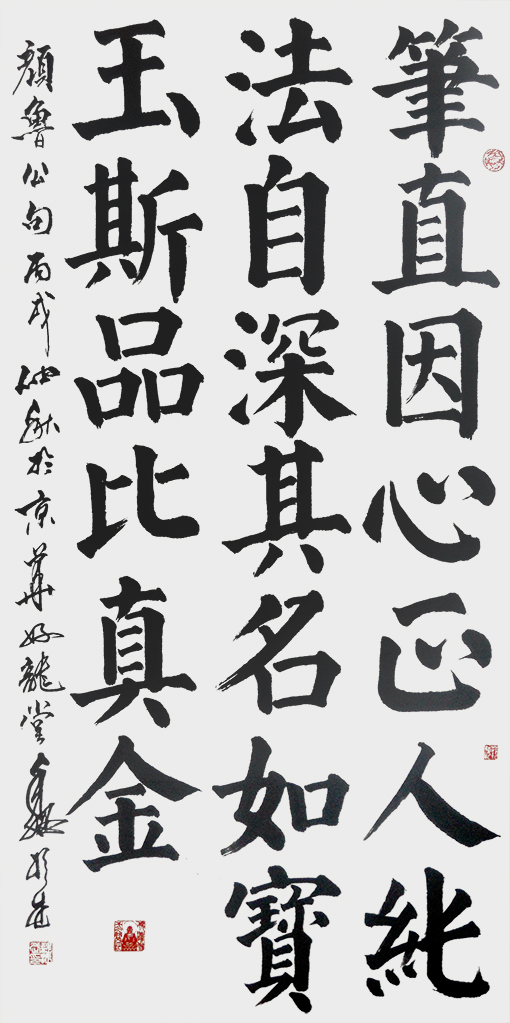 筆直因心正人純
法自深其名如寶
玉斯品比真金
顏魯公句丙戌仲秋於京華好龍堂